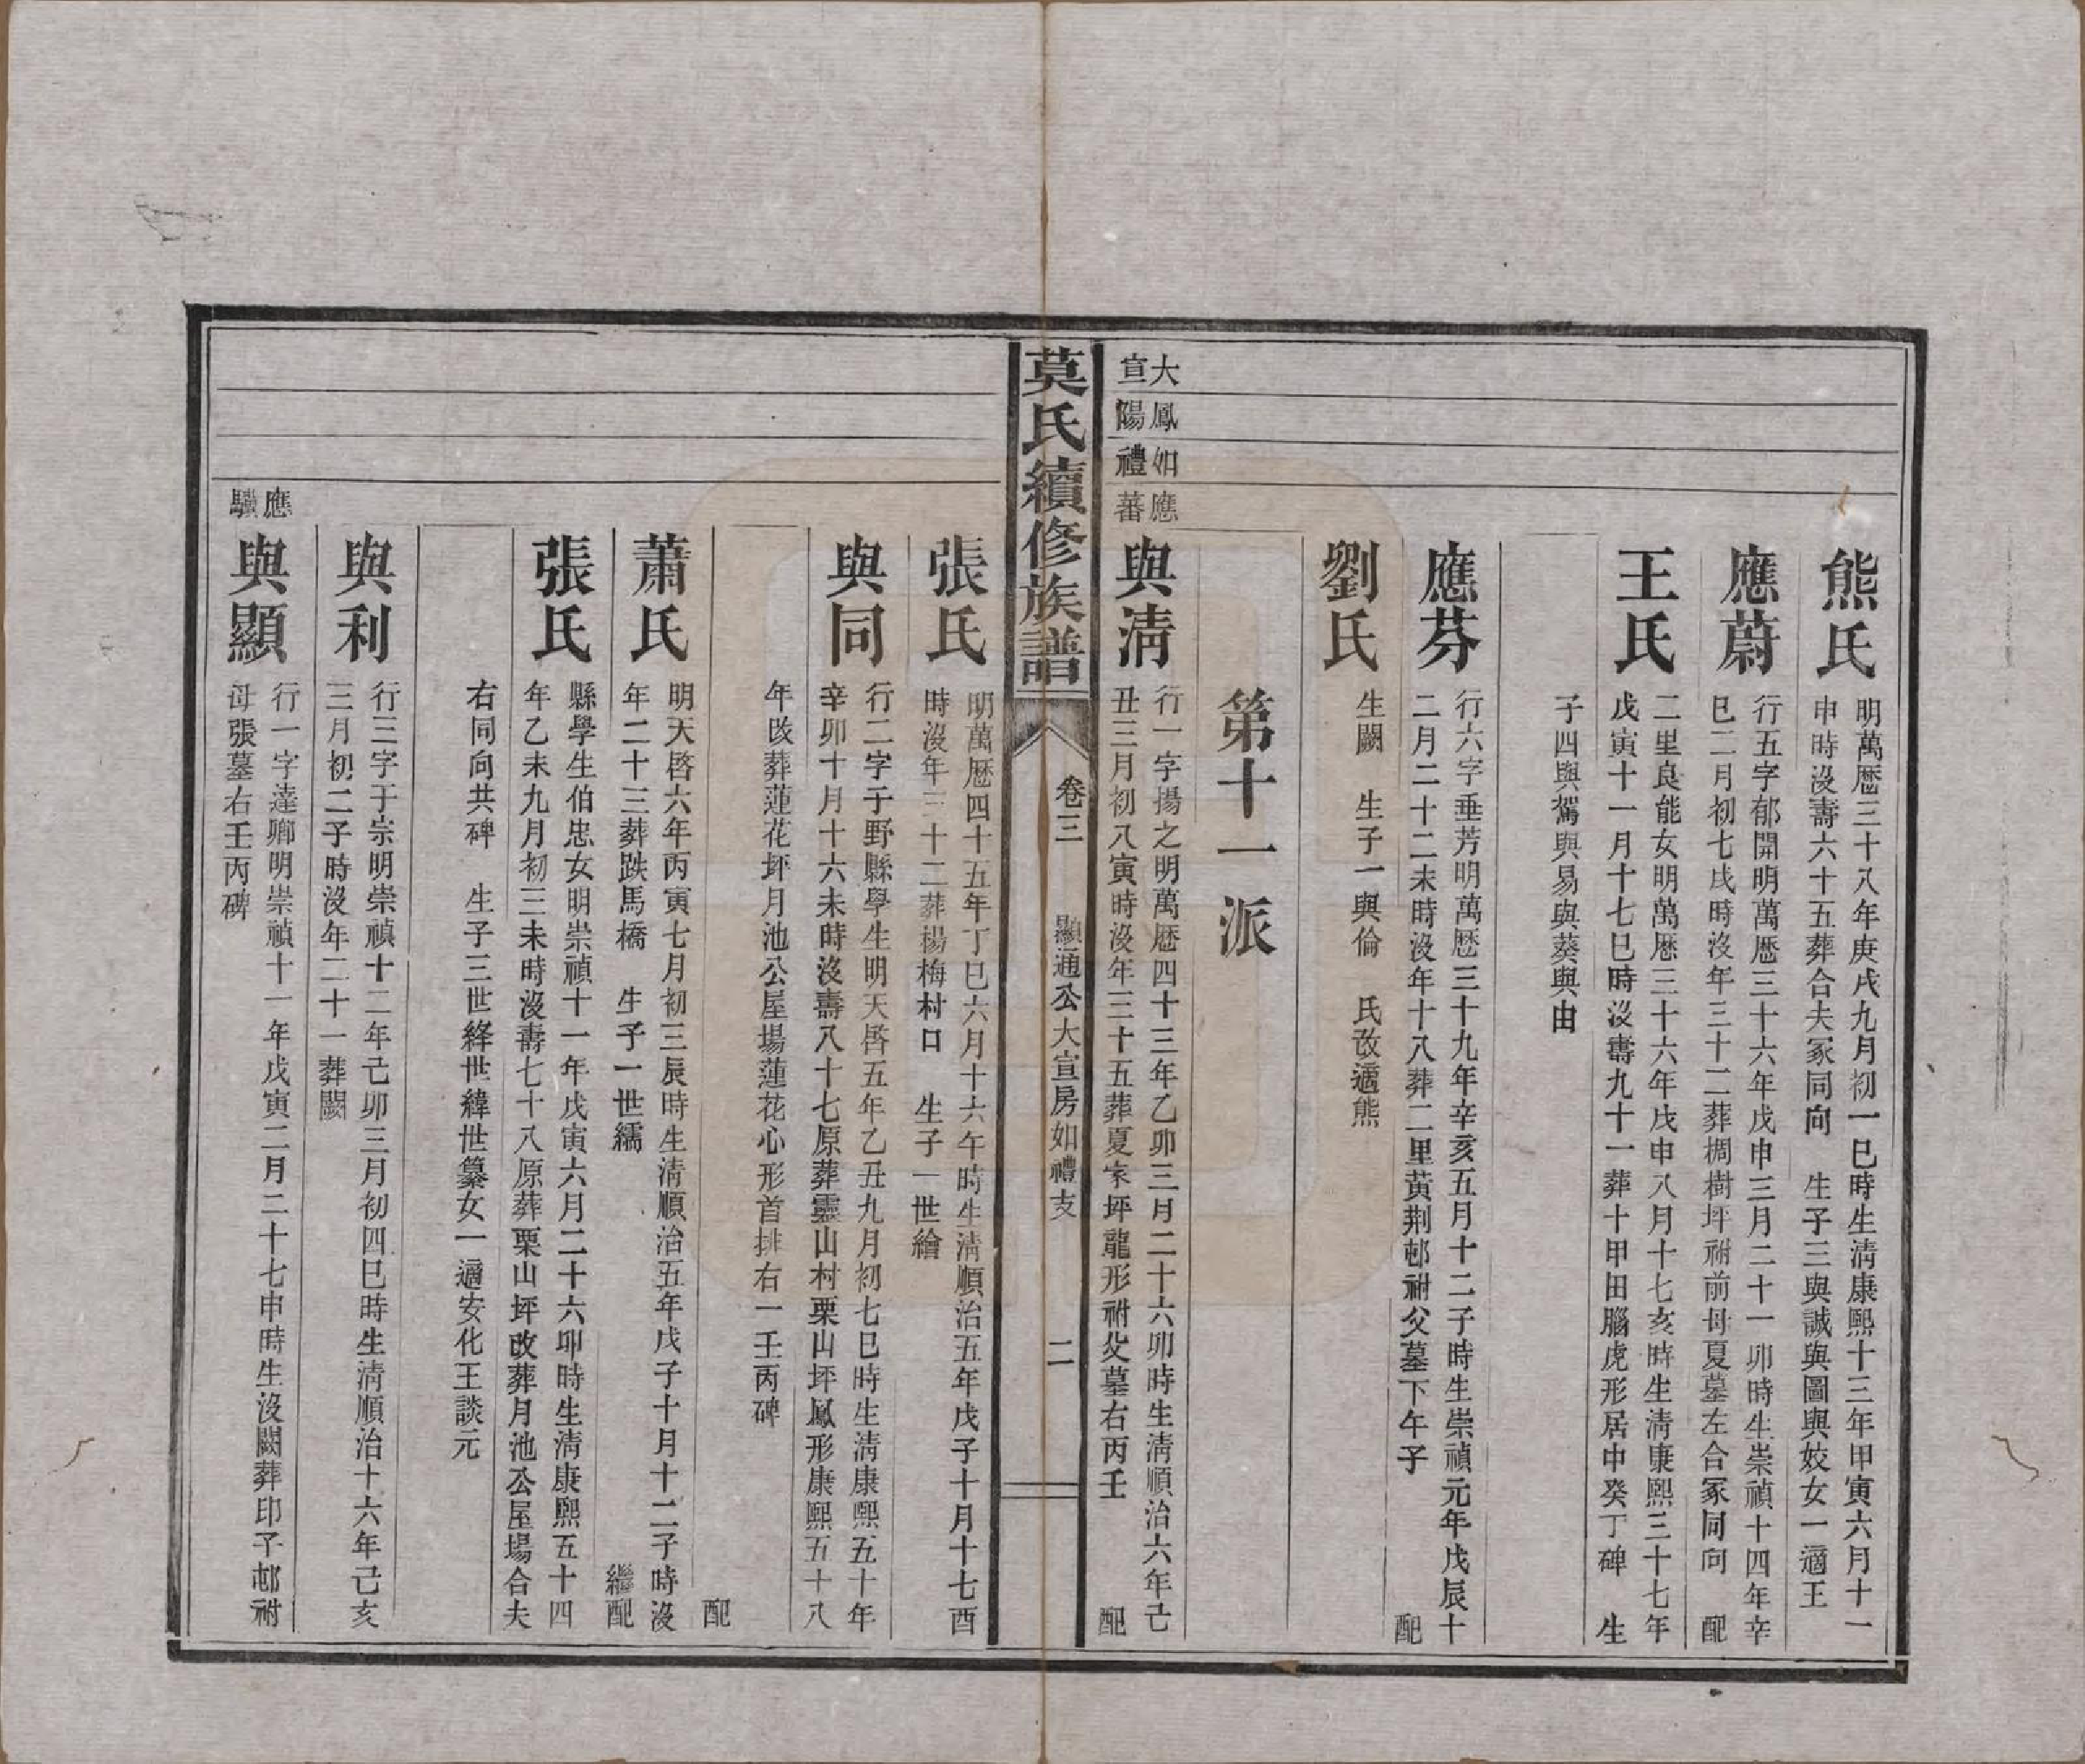 熊氏
明萬曆三十八年庚戌九月初一巳時生清康熙十三年甲寅六月十一
申時沒壽六十五葬合夫冢同向 生子三與誠與圖與姣女一適王
應蔚
行五字郁開明萬曆三十六年戊申三月二十一卯時生崇禎十四年辛
巳二月初七戌時沒年三十二葬椆樹坪祔前母夏墓左合冢同向 配
王氏
二里良能女明萬曆三十六年戊申八月十七亥時生清康熙三十七年
戊寅十一月十七巳時沒壽九十一葬十甲田腦虎形居中癸丁碑 生
子四與駕與易與葵與由
應芬
行六字垂芳明萬曆三十九年辛亥五月十二子時生崇禎元年戊辰十
二月二十二未時沒年十八葬二里黃荆邨祔父墓下午子 配
劉氏
生闕 生子一與倫 氏改適熊
第十一派
大鳳如應
宣陽禮蕃
與清
行一字揚之明萬曆四十三年乙卯三月二十六卯時生清順治六年己
丑三月初八寅時沒年三十五葬夏家坪龍形祔父墓右丙壬 配
莫氏續修族譜
卷三 顯通公大宣房如禮支 二
張氏
明萬曆四十五年丁巳六月十六午時生清順治五年戊子十月十七酉
時沒年三十二葬楊梅村口 生子一世繪
與同
行二字于野縣學生明天啓五年乙丑九月初七巳時生清康熙五十年
辛卯十月十六未時沒壽八十七原葬靈山村栗山坪鳳形康熙五十八
年改葬蓮花坪月池公屋場蓮花心形首排右一壬丙碑
配
蕭氏
明天啓六年丙寅七月初三辰時生清順治五年戊子十月十二子時沒
年二十三葬跌馬橋 生子一世繻 繼配
張氏
縣學生伯忠女明崇禎十一年戊寅六月二十六卯時生清康熙五十四
年乙未九月初三未時沒壽七十八原葬栗山坪改葬月池公屋場合夫
右同向共碑 生子三世絳世緯世纂女一適安化王談元
與利
行三字于宗明崇禎十二年己卯三月初四巳時生清順治十六年己亥
三月初二子時沒年二十一葬闕
應
驥
與顯
行一字達卿明崇禎十一年戊寅二月二十七申時生沒闕葬印子邨祔
母張墓右壬丙碑